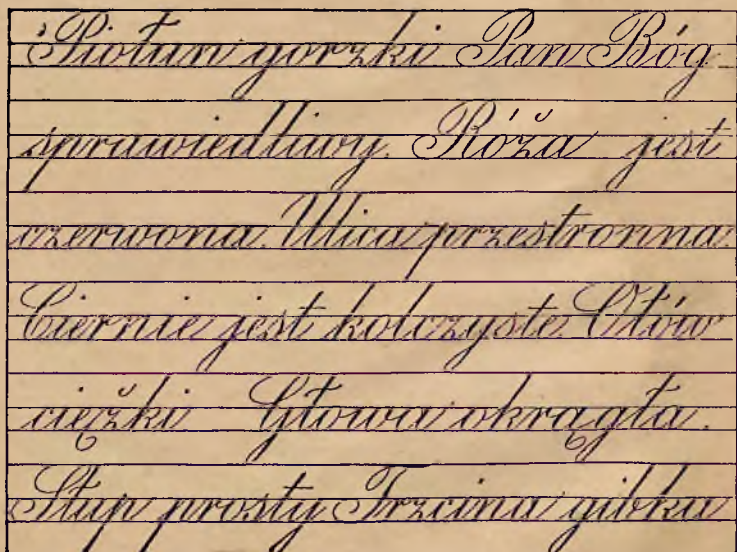 Piołun gorzki Pan Bóg
sprawiedliwy. Róża jest
czerwona. Ulica przestronna.
Ciernie jest kolczyste. Ołów
ciężki Głowa okrągła.
Słup prosty Trzcina gibka